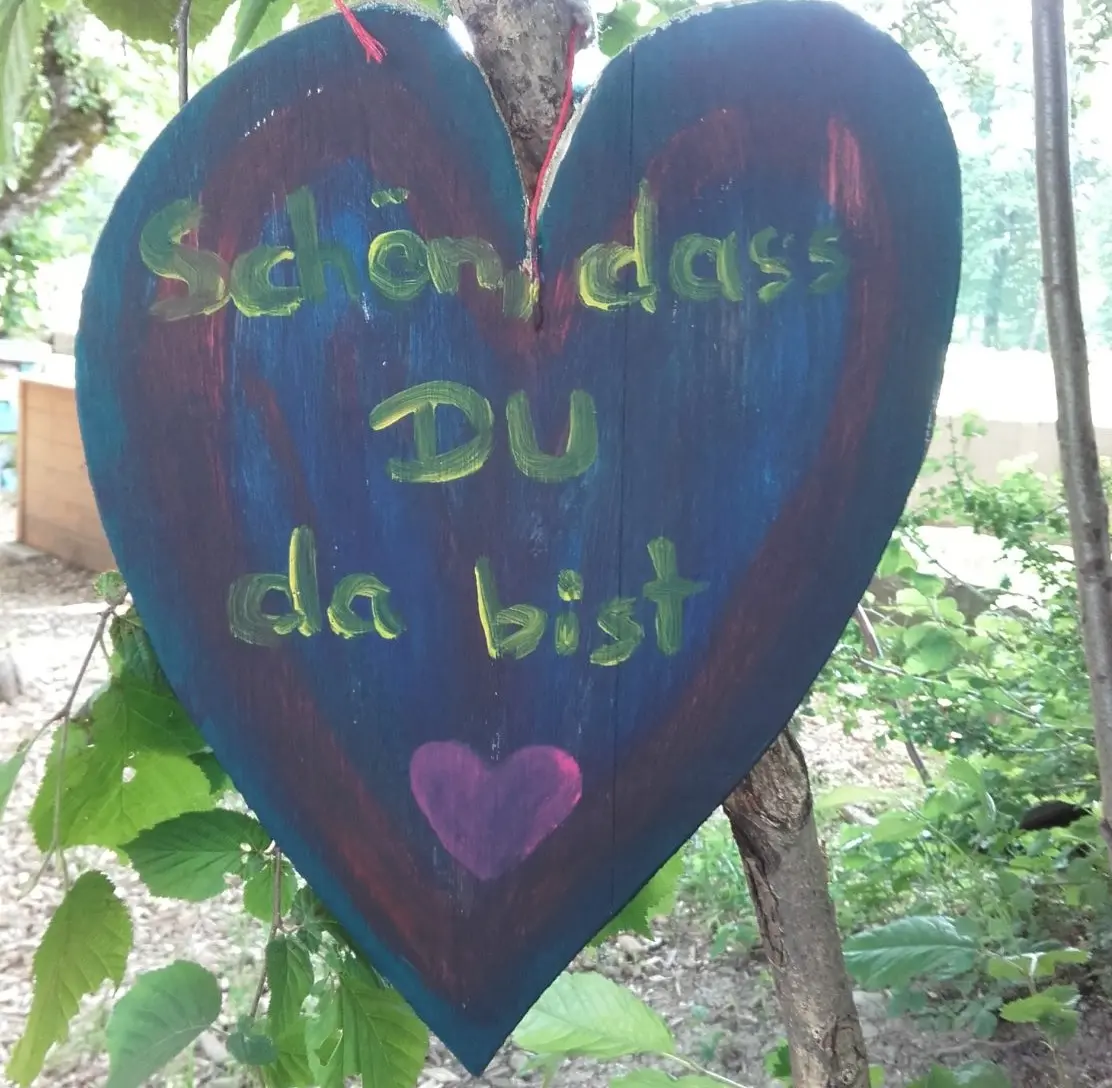 Schön, dass
DU
da bist